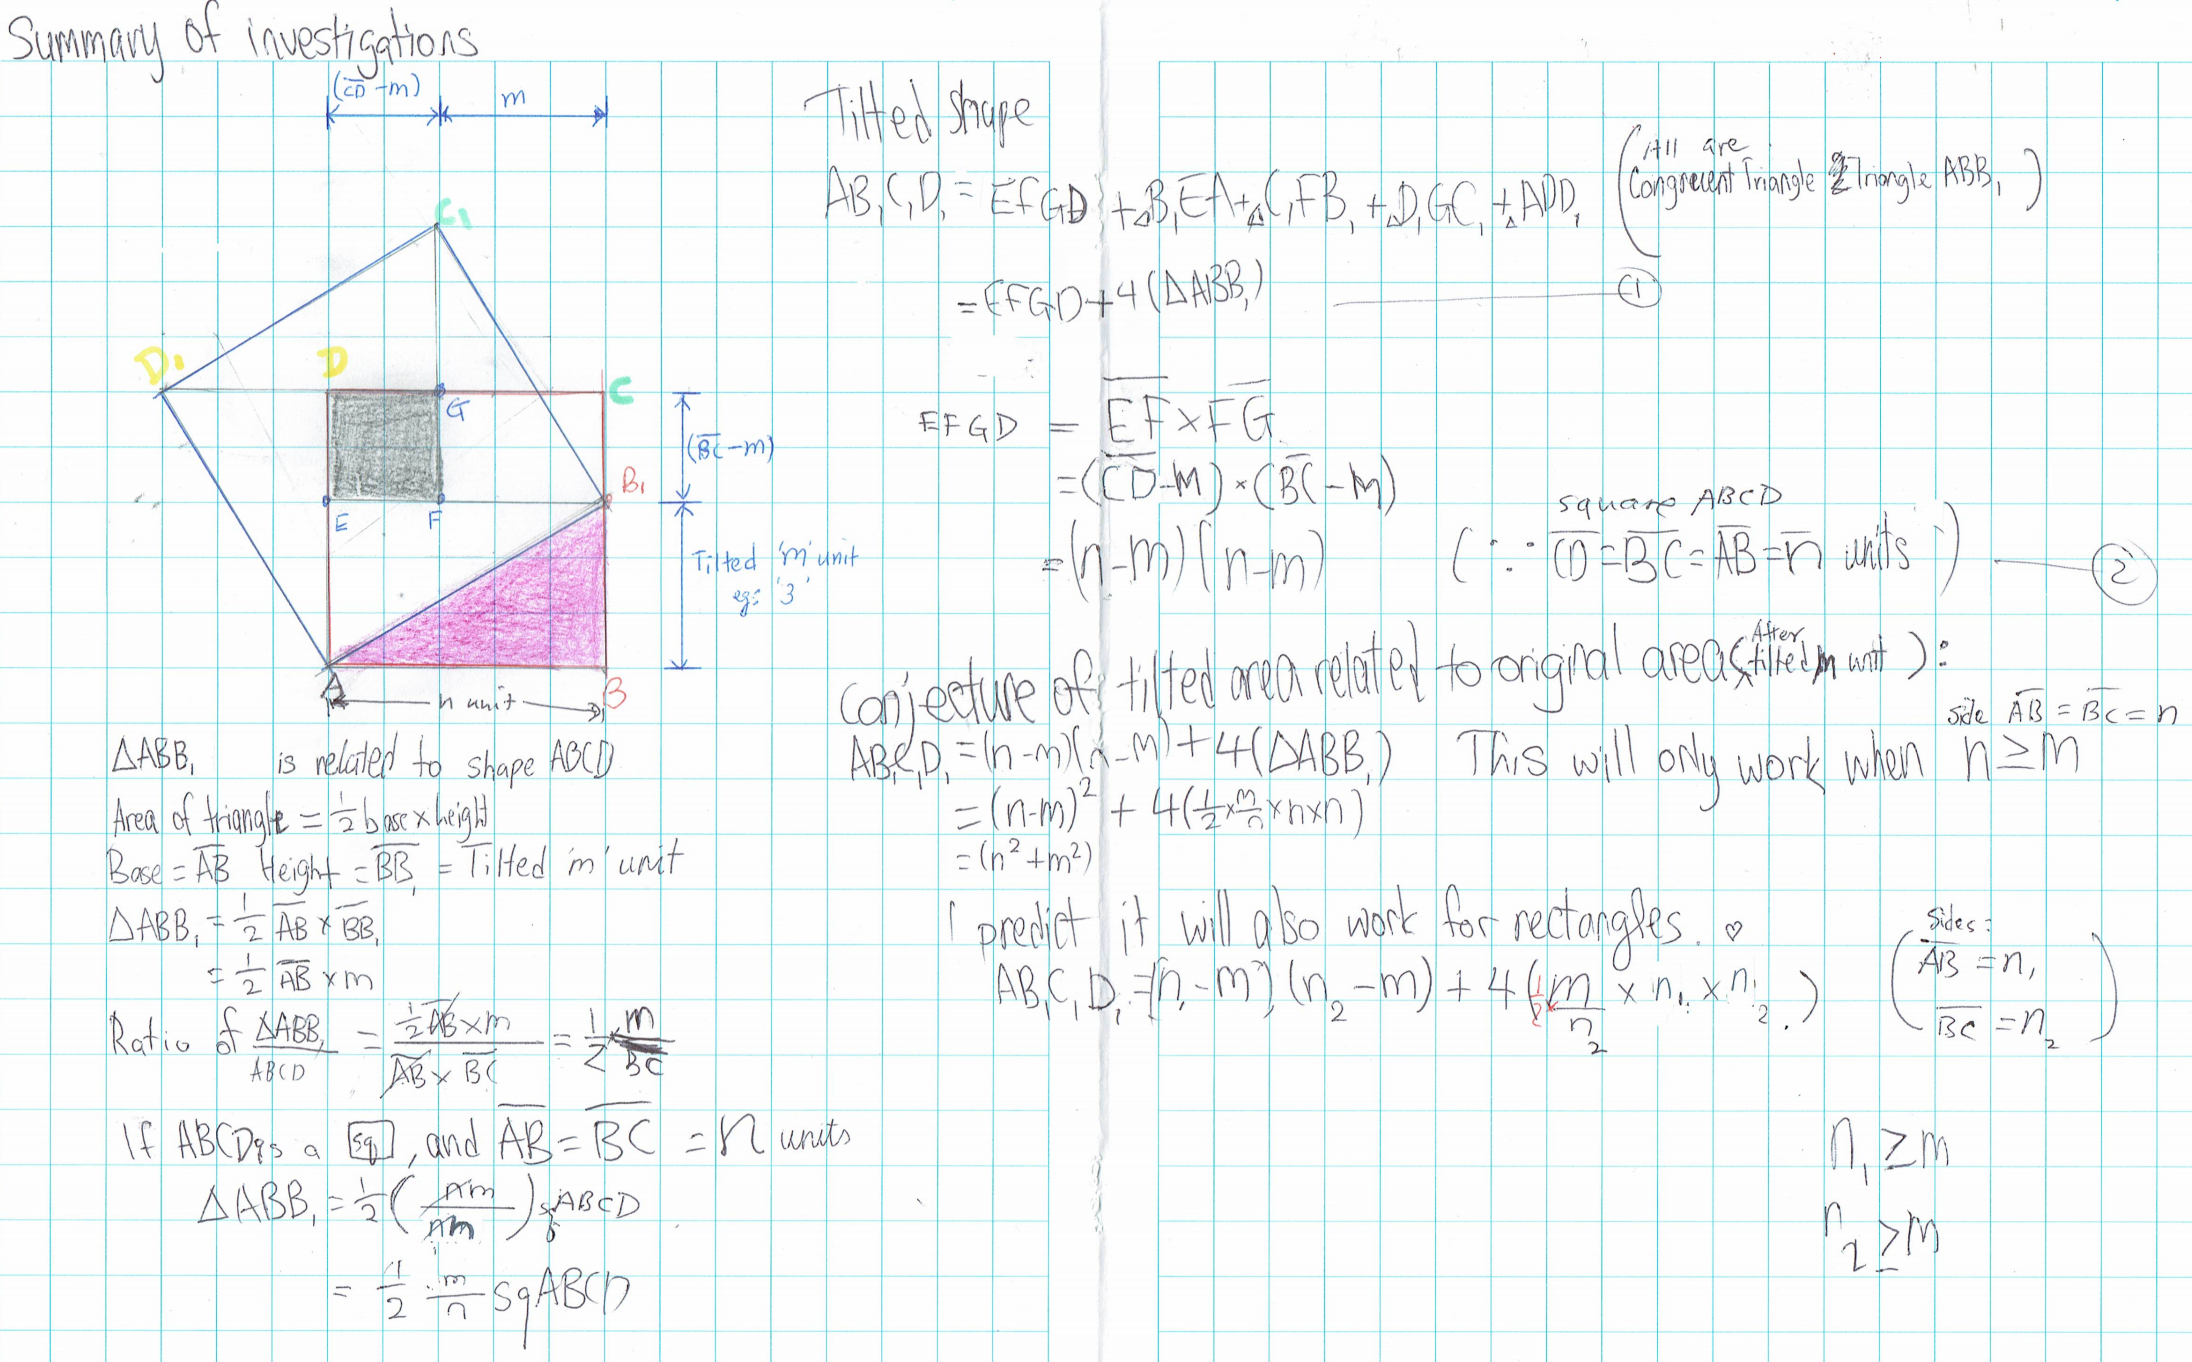 Summary of investigations
(C̅D̅-m)
m
C₁
D₁
D
C
G
(B̅C̅-m)
B₁
E
F
Tilted 'm' unit
eg: '3'
A
n unit
B
ΔABB₁ is related to shape ABCD
Area of triangle = 1/2 base × height
Base = A̅B̅ Height = B̅B̅₁ = Tilted 'm' unit
ΔABB₁ = 1/2 A̅B̅ × B̅B̅₁
= 1/2 A̅B̅ × m
Ratio of ΔABB₁/ABCD = (1/2 A̅B̅ × m)/(A̅B̅ × B̅C̅) = 1/2 × m/B̅C̅
If ABCD is a sq, and A̅B̅ = B̅C̅ = n units
ΔABB₁ = 1/2 ( ) sq ABCD
= 1/2 · m/n sq ABCD
Tilted shape
AB₁C₁D₁ = EFGD + ΔB₁EA + ΔC₁FB₁ + ΔD₁GC₁ + ΔADD₁
(All are
Congruent Triangle Triangle ABB₁)
= EFGD + 4(ΔABB₁) ①
EFGD = E̅F̅ × F̅G̅
= (C̅D̅-m) × (B̅C̅-m)
square ABCD
= (n-m)(n-m) (∵ C̅D̅ = B̅C̅ = A̅B̅ = n̅ units) ②
Conjecture of tilted area related to original area (After tilted m unit):
side A̅B̅ = B̅C̅ = n
AB₁C₁D₁ = (n-m)(n-m) + 4(ΔABB₁) This will only work when n ≥ m
= (n-m)² + 4(1/2 × m/n × n × n)
= (n² + m²)
I predict it will also work for rectangles. ♡
AB₁C₁D₁ = (n₁-m)(n₂-m) + 4(1/2 × m/n₂ × n₁ × n₂)
(Sides:
A̅B̅ = n₁
B̅C̅ = n₂)
n₁ ≥ m
n₂ ≥ m